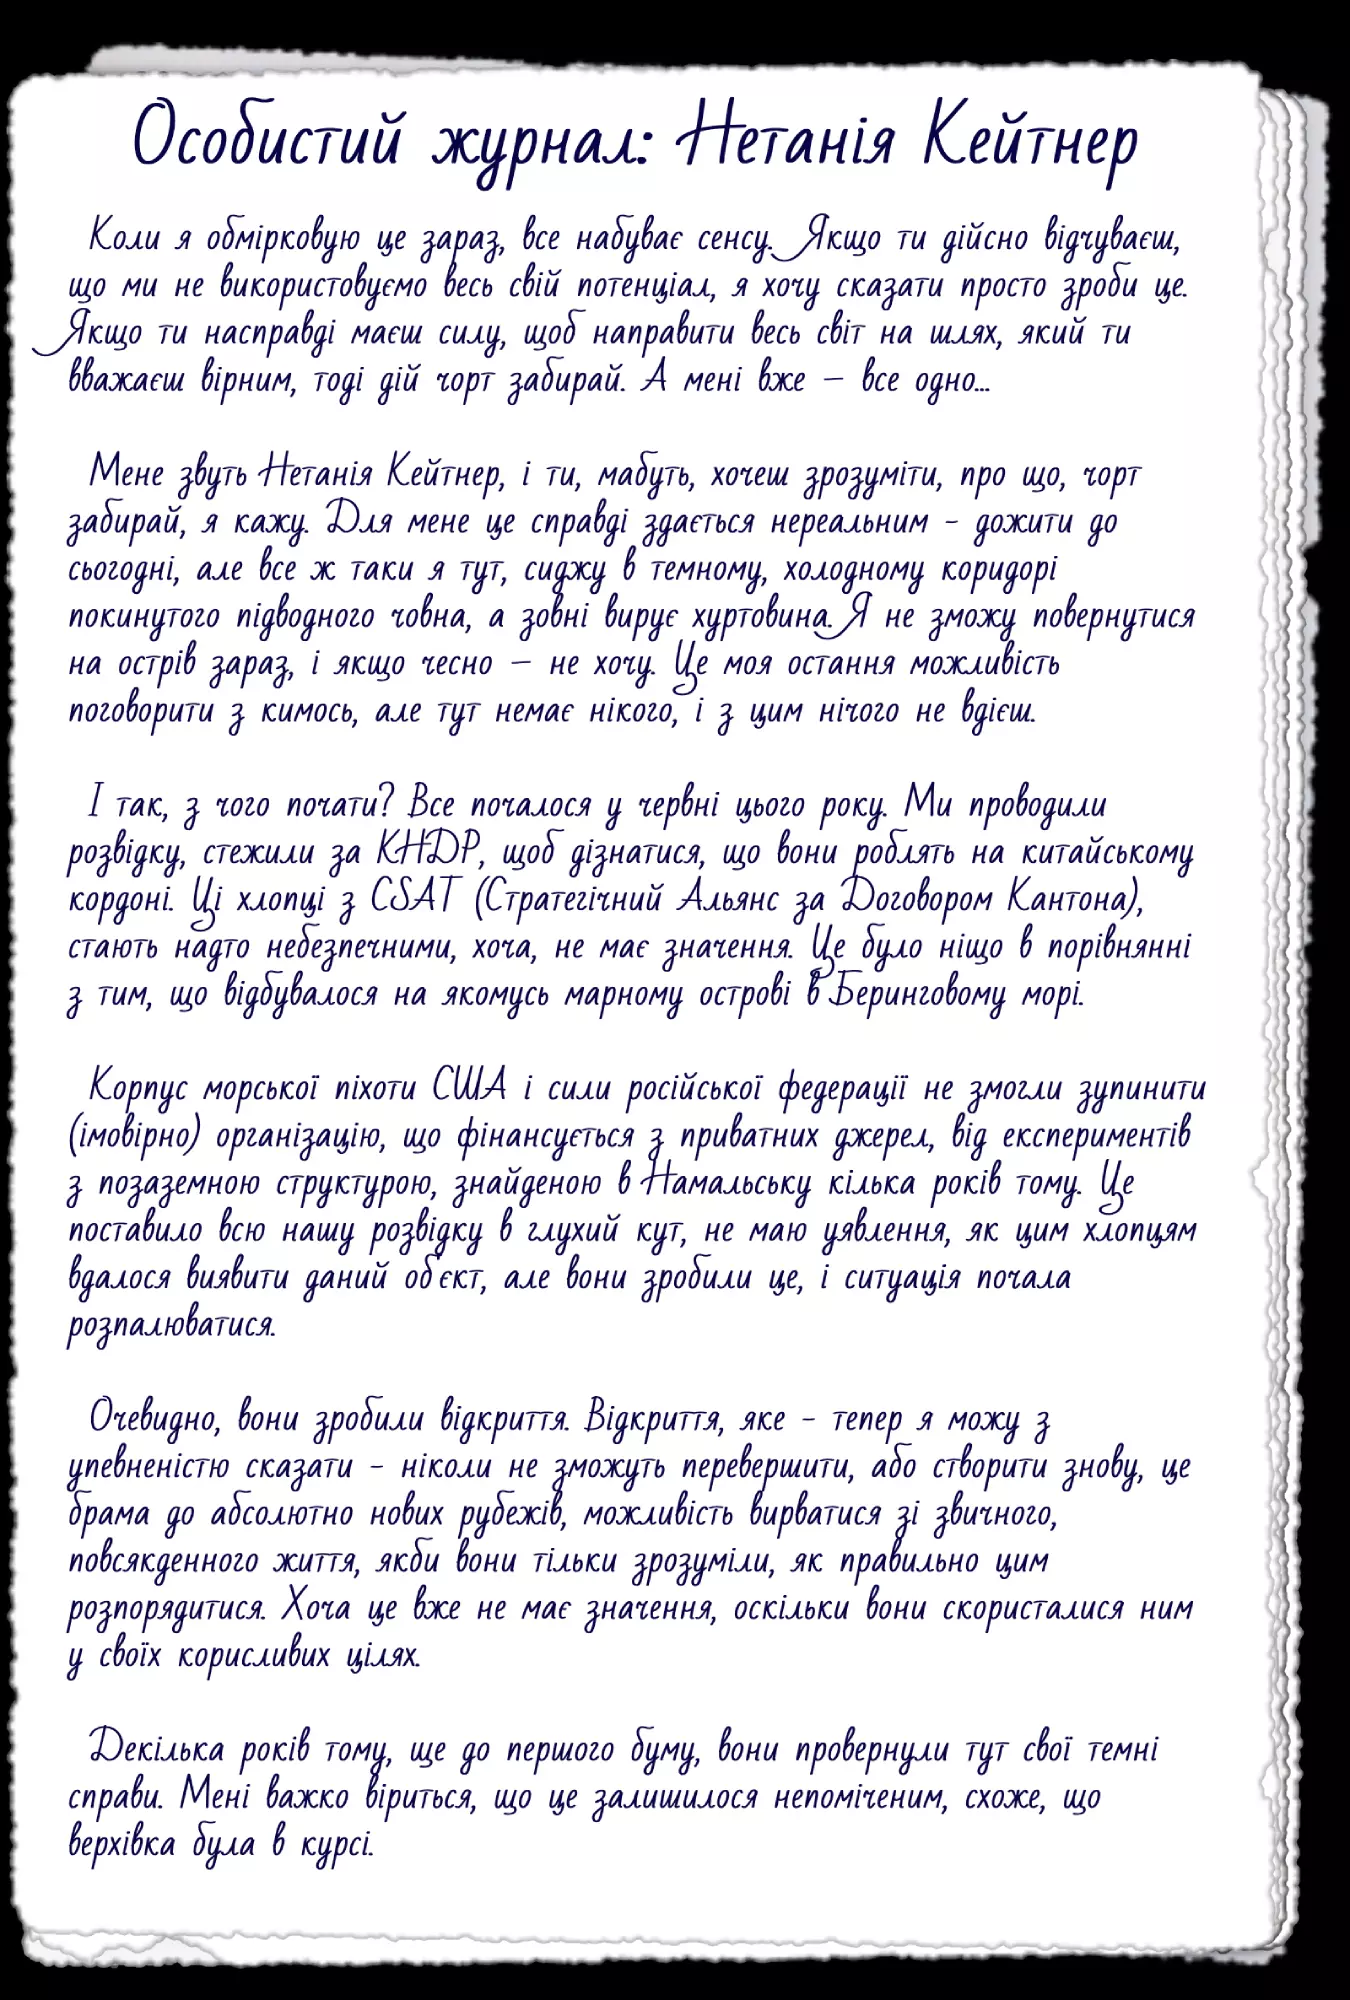 Особистий журнал: Нетанія Кейтнер
Коли я обмірковую це зараз, все набуває сенсу. Якщо ти дійсно відчуваєш,
що ми не використовуємо весь свій потенціал, я хочу сказати просто зроби це.
Якщо ти насправді маєш силу, щоб направити весь світ на шлях, який ти
вважаєш вірним, тоді дій чорт забирай. А мені вже – все одно...
Мене звуть Нетанія Кейтнер, і ти, мабуть, хочеш зрозуміти, про що, чорт
забирай, я кажу. Для мене це справді здається нереальним - дожити до
сьогодні, але все ж таки я тут, сиджу в темному, холодному коридорі
покинутого підводного човна, а зовні вирує хуртовина. Я не зможу повернутися
на острів зараз, і якщо чесно – не хочу. Це моя остання можливість
поговорити з кимось, але тут немає нікого, і з цим нічого не вдієш.
І так, з чого почати? Все почалося у червні цього року. Ми проводили
розвідку, стежили за КНДР, щоб дізнатися, що вони роблять на китайському
кордоні. Ці хлопці з CSAT (Стратегічний Альянс за Договором Кантона),
стають надто небезпечними, хоча, не має значення. Це було ніщо в порівнянні
з тим, що відбувалося на якомусь марному острові в Беринговому морі.
Корпус морської піхоти США і сили російської федерації не змогли зупинити
(імовірно) організацію, що фінансується з приватних джерел, від експериментів
з позаземною структурою, знайденою в Намальську кілька років тому. Це
поставило всю нашу розвідку в глухий кут, не маю уявлення, як цим хлопцям
вдалося виявити даний об'єкт, але вони зробили це, і ситуація почала
розпалюватися.
Очевидно, вони зробили відкриття. Відкриття, яке - тепер я можу з
упевненістю сказати - ніколи не зможуть перевершити, або створити знову, це
брама до абсолютно нових рубежів, можливість вирватися зі звичного,
повсякденного життя, якби вони тільки зрозуміли, як правильно цим
розпорядитися. Хоча це вже не має значення, оскільки вони скористалися ним
у своїх корисливих цілях.
Декілька років тому, ще до першого буму, вони провернули тут свої темні
справи. Мені важко віриться, що це залишилося непоміченим, схоже, що
верхівка була в курсі.